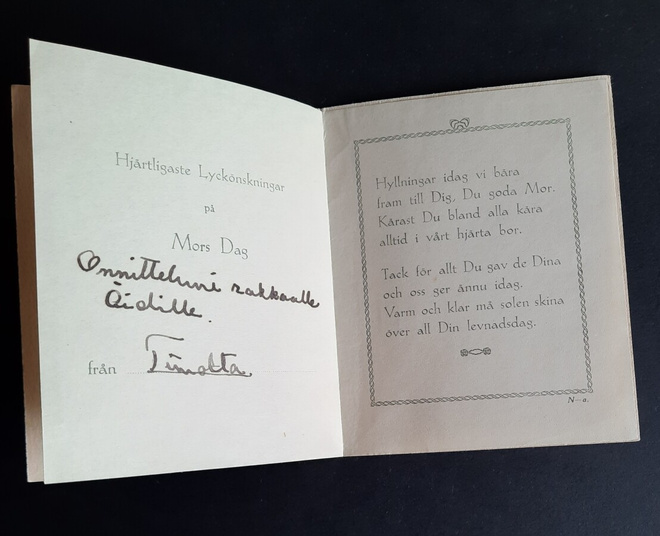 Hjärtligaste Lyckönskningar
på
Mors Dag
Onnitteluni rakkaalle
Äidille.
från Timolta
Hyllningar idag vi bära
fram till Dig, Du goda Mor.
Kärast Du bland alla kära
alltid i vårt hjärta bor.
Tack för allt Du gav de Dina
och oss ger ännu idag.
Varm och klar må solen skina
över all Din levnadsdag.
N—a.